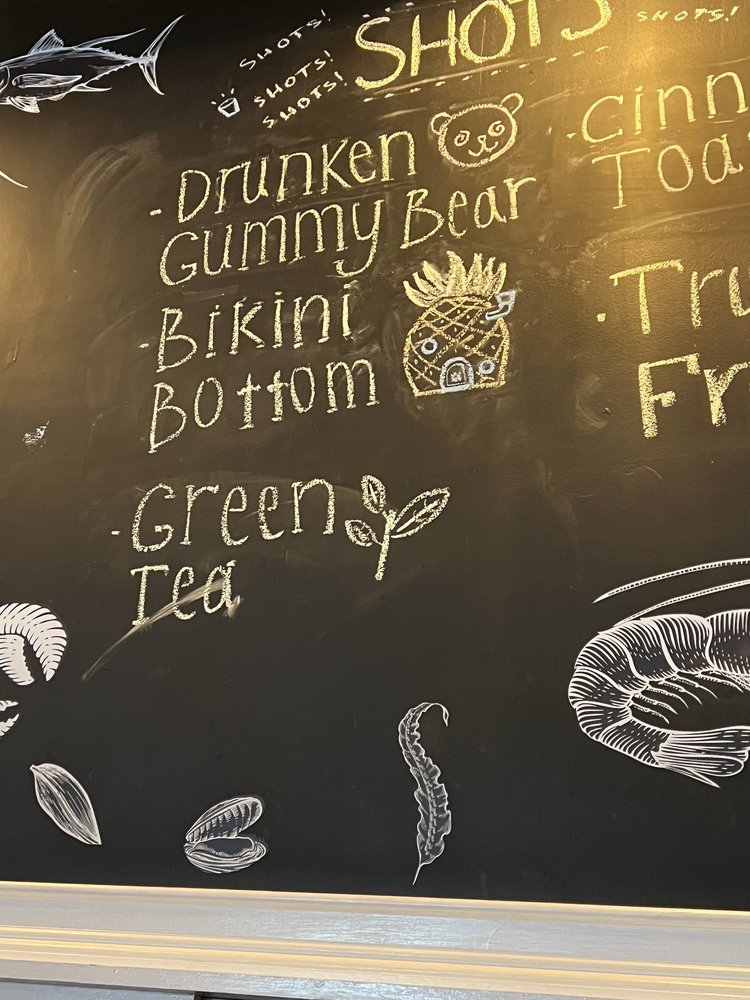 SHOTS!
SHOTS!
SHOTS!
SHOTS
SHOTS!
-Drunken
Gummy Bear
-Bikini
Bottom
-Green
Tea
-Cinn
Toa
·Tru
Fr